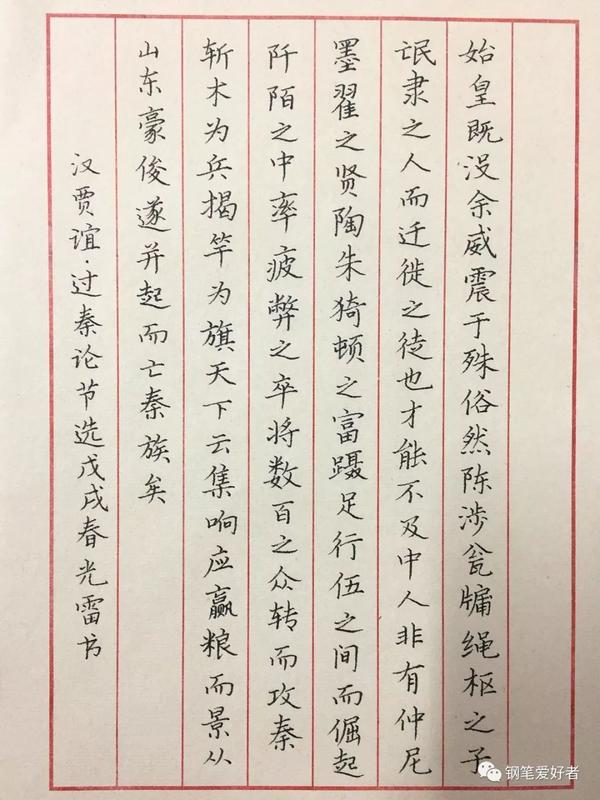 始皇既没余威震于殊俗然陈涉瓮牖绳枢之子
氓隶之人而迁徙之徒也才能不及中人非有仲尼
墨翟之贤陶朱猗顿之富蹑足行伍之间而倔起
阡陌之中率疲弊之卒将数百之众转而攻秦
斩木为兵揭竿为旗天下云集响应赢粮而景从
山东豪俊遂并起而亡秦族矣
汉贾谊·过秦论节选戊戌春光雷书
钢笔爱好者